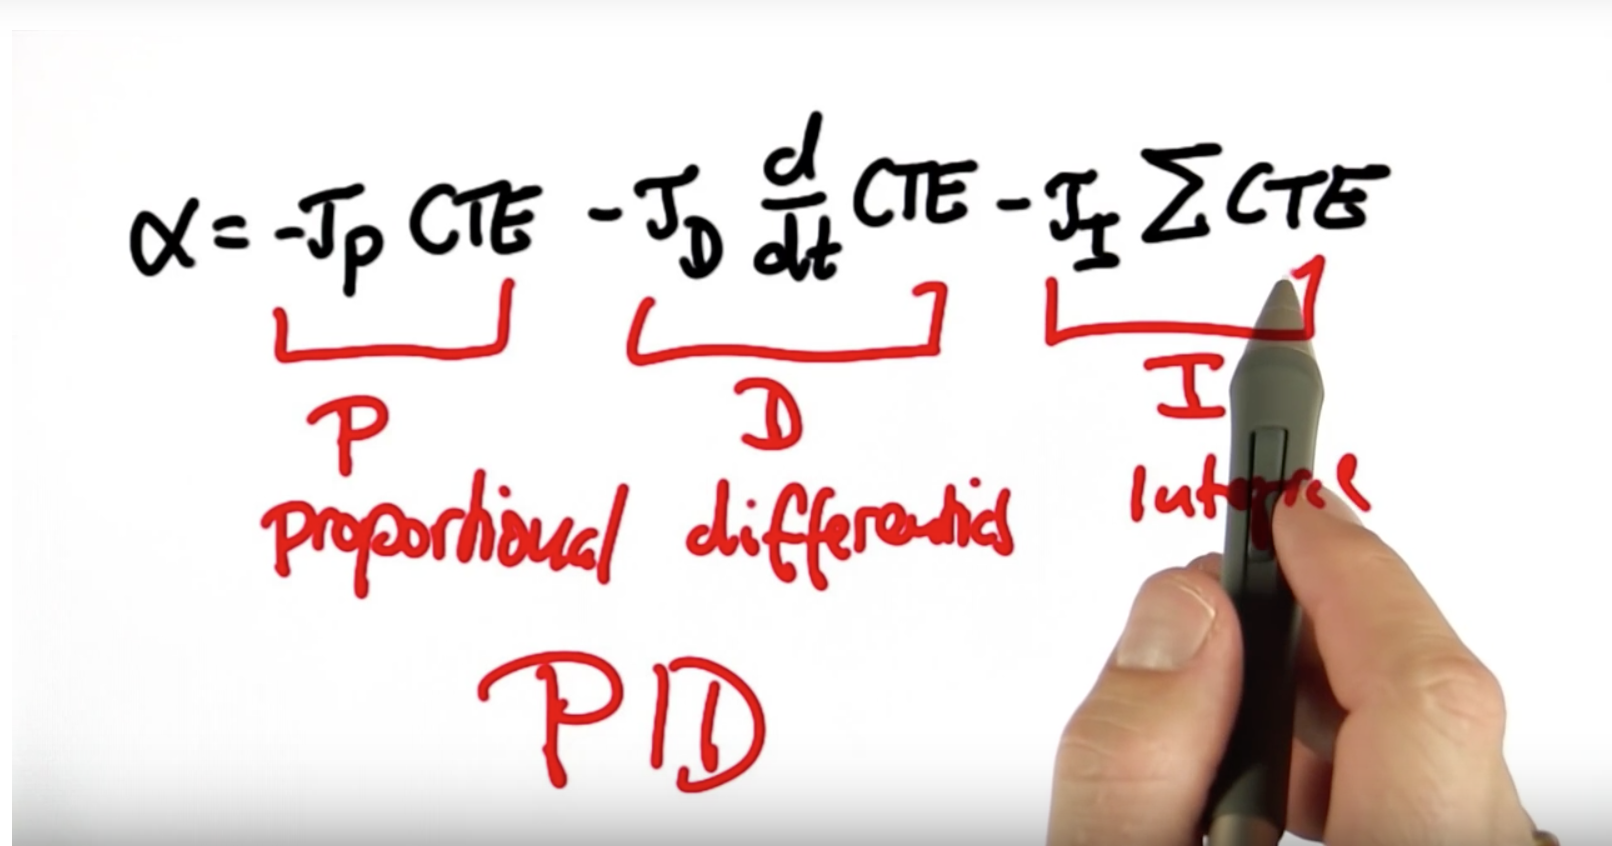 α = -τ_P CTE - τ_D d/dt CTE - τ_I Σ CTE
P D I
proportional differential Integral
PID